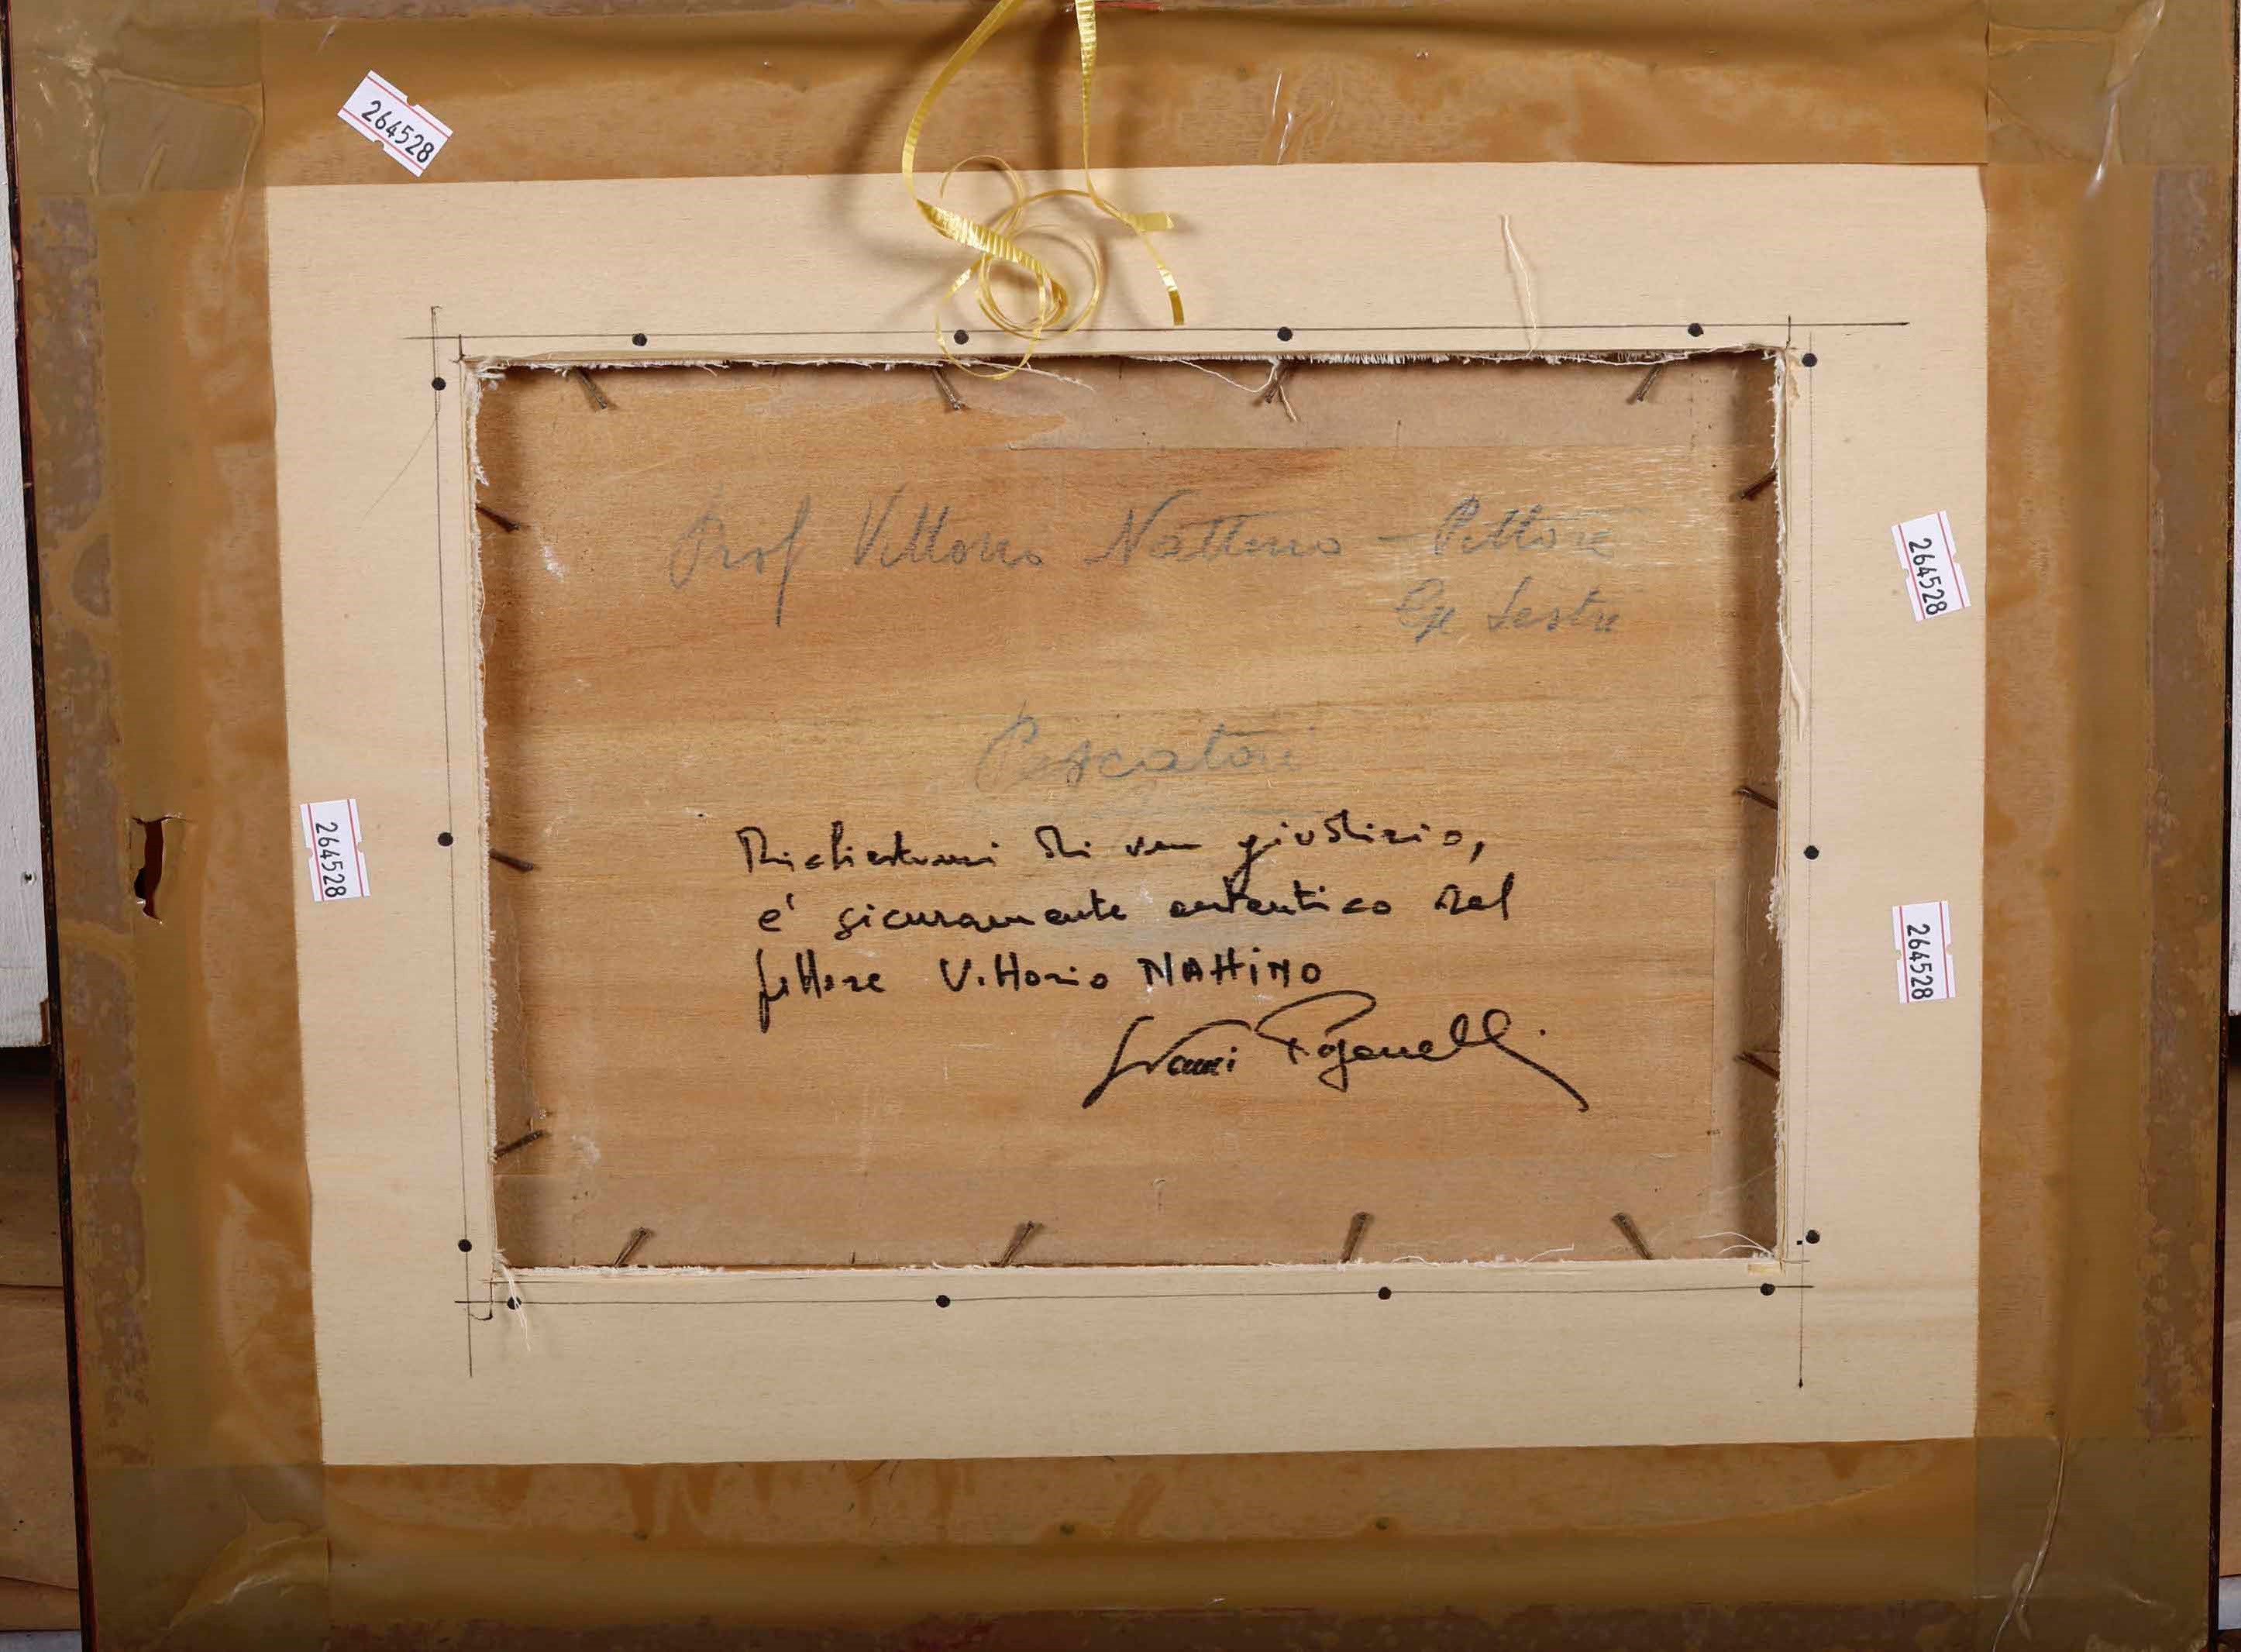 264528
Prof Vittorio Nattino - Pittore
Ge Sestri
Pescatori
Richiestomi di un giudizio,
e' sicuramente autentico del
pittore Vittorio NATTINO
264528
264528
264528